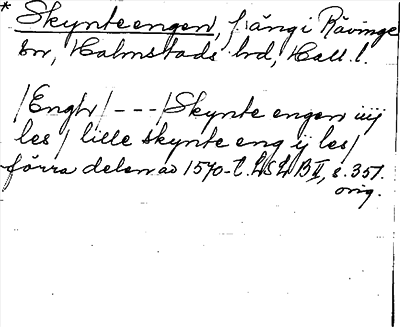 * Skynteengen, f. äng i Rävinge
sn, Halmstads hd, Hall. l.
/Engh/ - - - /Skynte engen iiij
les/ lille skynte eng ij les/
förra delen av 1570-t. LSH B II, s. 357.
orig.